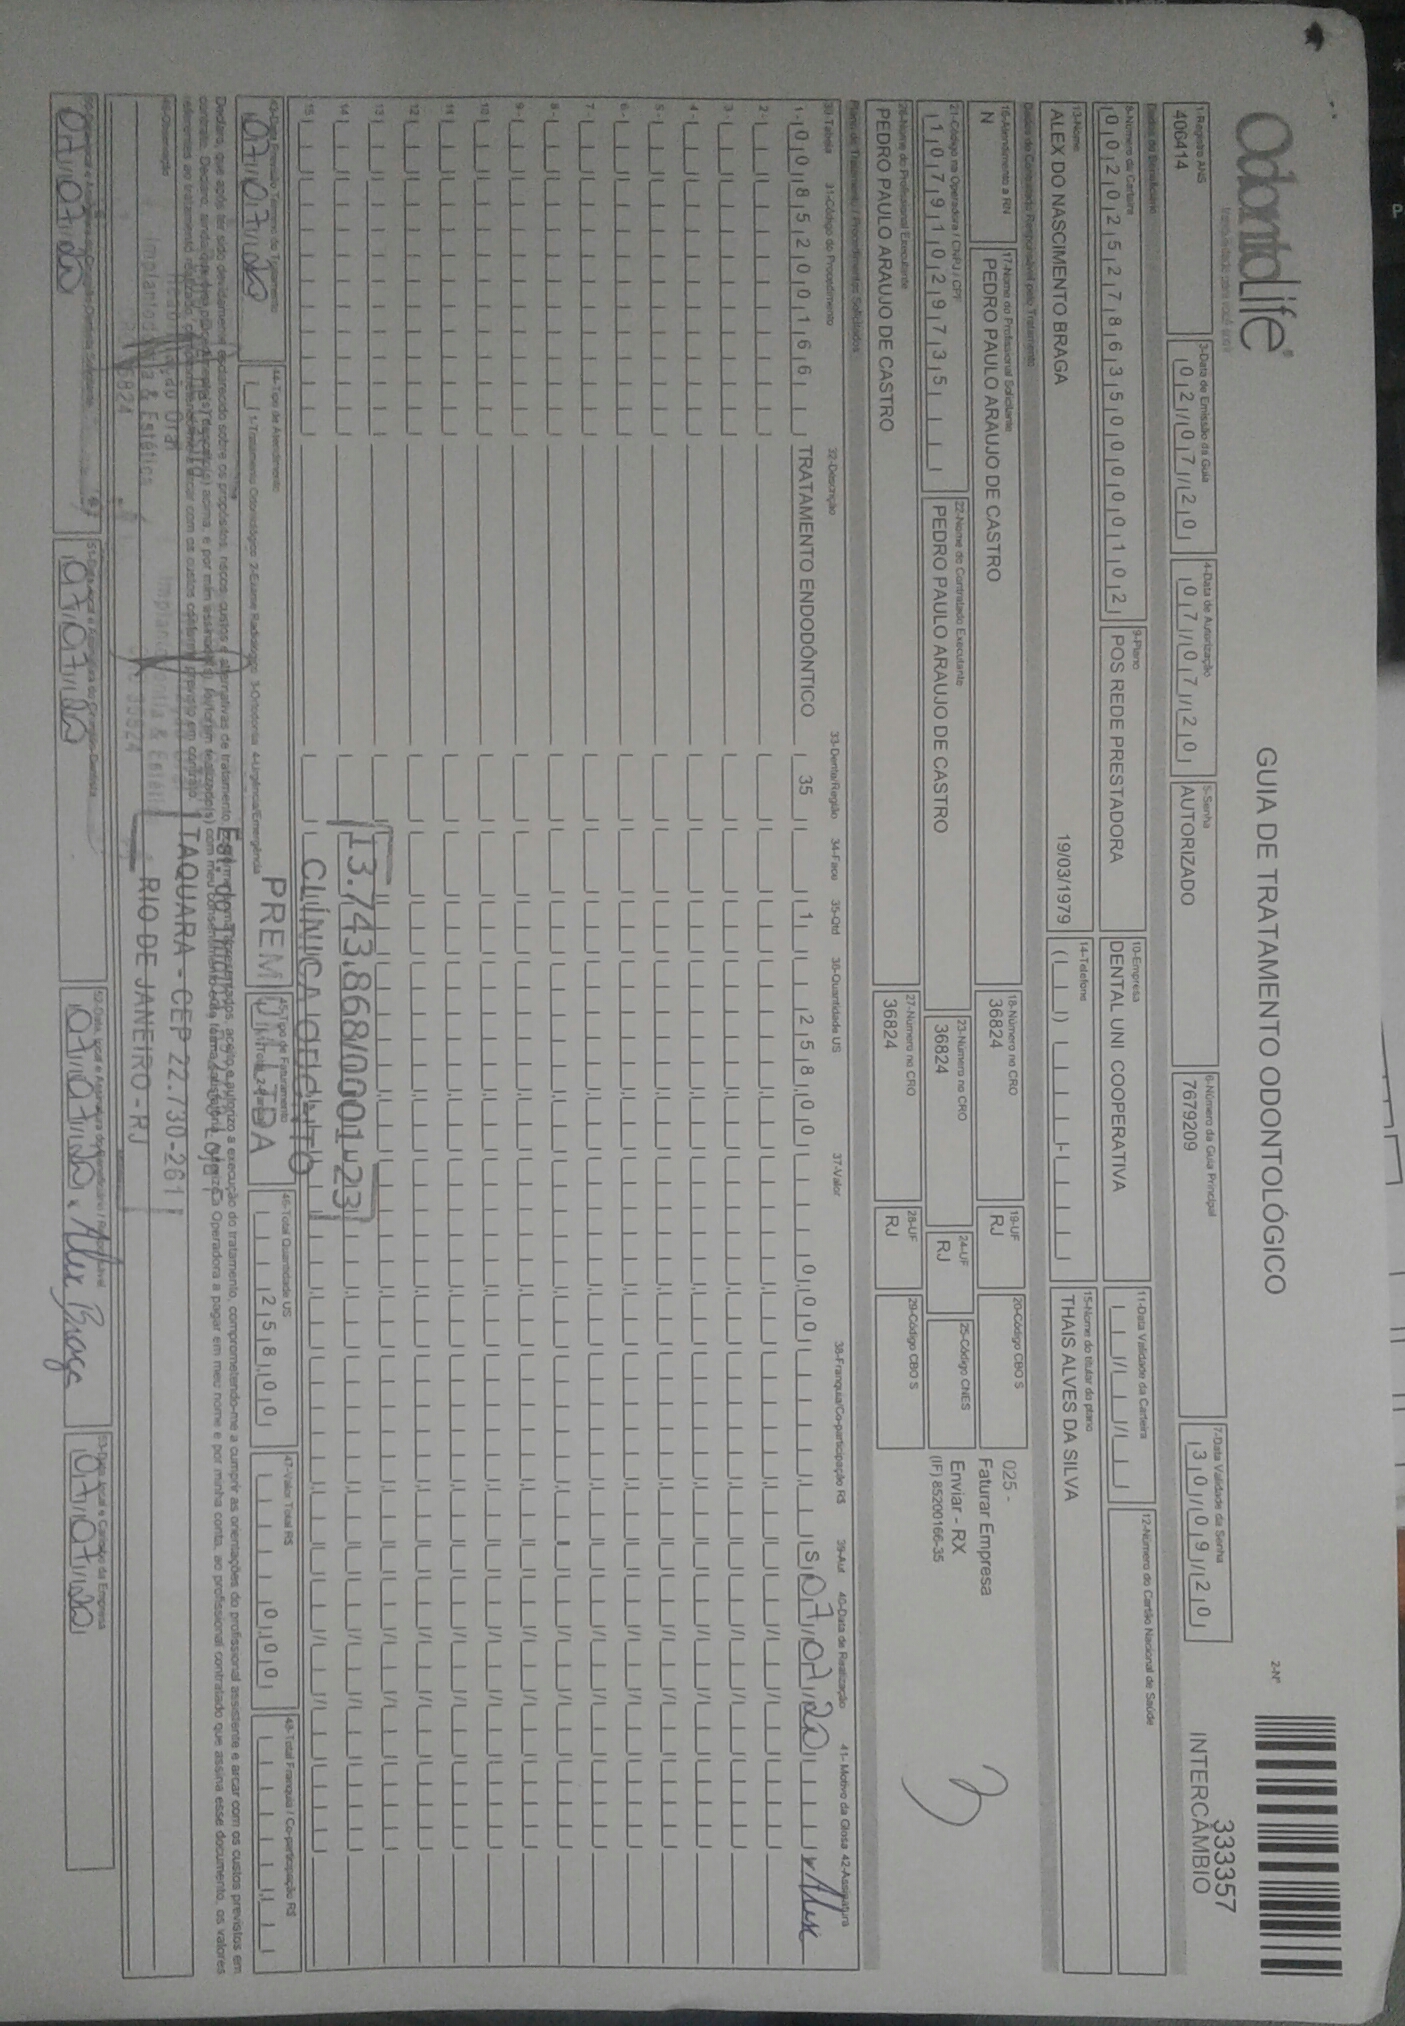 OdontoLife®
GUIA DE TRATAMENTO ODONTOLÓGICO
2-Nº
333357
INTERCÂMBIO
1-Registro ANS
406414
3-Data de Emissão da Guia
02/07/20
4-Data de Autorização
07/07/20
5-Senha
AUTORIZADO
6-Número da Guia Principal
7679209
7-Data Validade da Senha
30/09/20
Dados do Beneficiário
8-Número da Carteira
00202527863500000102
9-Plano
POS REDE PRESTADORA
10-Empresa
DENTAL UNI COOPERATIVA
11-Data Validade da Carteira
12-Número do Cartão Nacional de Saúde
13-Nome
ALEX DO NASCIMENTO BRAGA
19/03/1979
14-Telefone
15-Nome do titular do plano
THAIS ALVES DA SILVA
Dados do Contratado Responsável pelo Tratamento
16-Atendimento a RN
N
17-Nome do Profissional Solicitante
PEDRO PAULO ARAUJO DE CASTRO
18-Número no CRO
36824
19-UF
RJ
20-Código CBO S
025 -
Faturar Empresa
Enviar - RX
(IF) 85200166-35
21-Código na Operadora / CNPJ / CPF
10791029735
22-Nome do Contratado Executante
PEDRO PAULO ARAUJO DE CASTRO
23-Número no CRO
36824
24-UF
RJ
25-Código CNES
26-Nome do Profissional Executante
PEDRO PAULO ARAUJO DE CASTRO
27-Número no CRO
36824
28-UF
RJ
29-Código CBO S
Plano de Tratamento / Procedimentos Solicitados
30-Tabela 31-Código do Procedimento 32-Descrição 33-Dente/Região 34-Face 35-Qtd 36-Quantidade US 37-Valor 38-Franquia/Co-participação R$ 39-Aut 40-Data de Realização 41- Motivo da Glosa 42-Assinatura
1- 00 85200166 TRATAMENTO ENDODÔNTICO 35 1 258,00 0,00 S 07/07/20 Alex
2-
3-
4-
5-
6-
7-
8-
9-
10
11
12
13
14
15
13.743.868/0001-23
CLÍNICA ORIDENTO
PREMIUM LTDA
TAQUARA - CEP 22.730-261
RIO DE JANEIRO - RJ
43-Data Previsão Término do Tratamento
07/07/20
44-Tipo de Atendimento
1-Tratamento Odontológico 2-Exame Radiológico 3-Ortodontia 4-Urgência/Emergência
45-Tipo de Faturamento
46-Total Quantidade US
258,00
47-Valor Total R$
0,00
48-Total Franquia / Co-participação R$
Declaro, que após ter sido devidamente esclarecido sobre os propósitos, riscos, custos e alternativas de tratamento, aceito e autorizo a execução do tratamento, comprometendo-me a cumprir as orientações do profissional assistente e arcar com os custos previstos em
contrato. Declaro, ainda que o(s) procedimento(s) descrito(s) acima, e por mim assinado(s), foi/foram realizado(s) com meu consentimento e de forma satisfatória. Autorizo a Operadora a pagar em meu nome e por minha conta, ao profissional contratado que assina esse documento, os valores
referentes ao tratamento realizado, comprometendo-me a arcar com os custos conforme previsto em contrato.
49-Observação
Implantodontia & Estética
07/07/20
51-Data, local e Assinatura do Cirurgião-Dentista
07/07/20
52-Data, local e Assinatura do Beneficiário / Responsável
07/07/20. Alex Braga
53-Data, local e Carimbo da Empresa
07/07/20